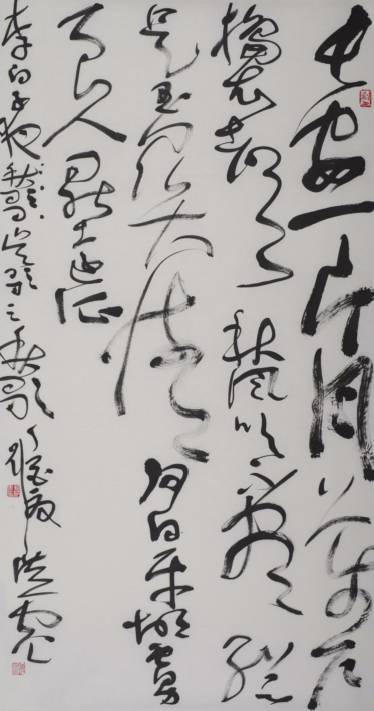 長安一片月万户
擣衣聲秋風吹不盡總
是玉関情何日平胡虜
良人罷遠征
李白子夜吴歌之秋歌